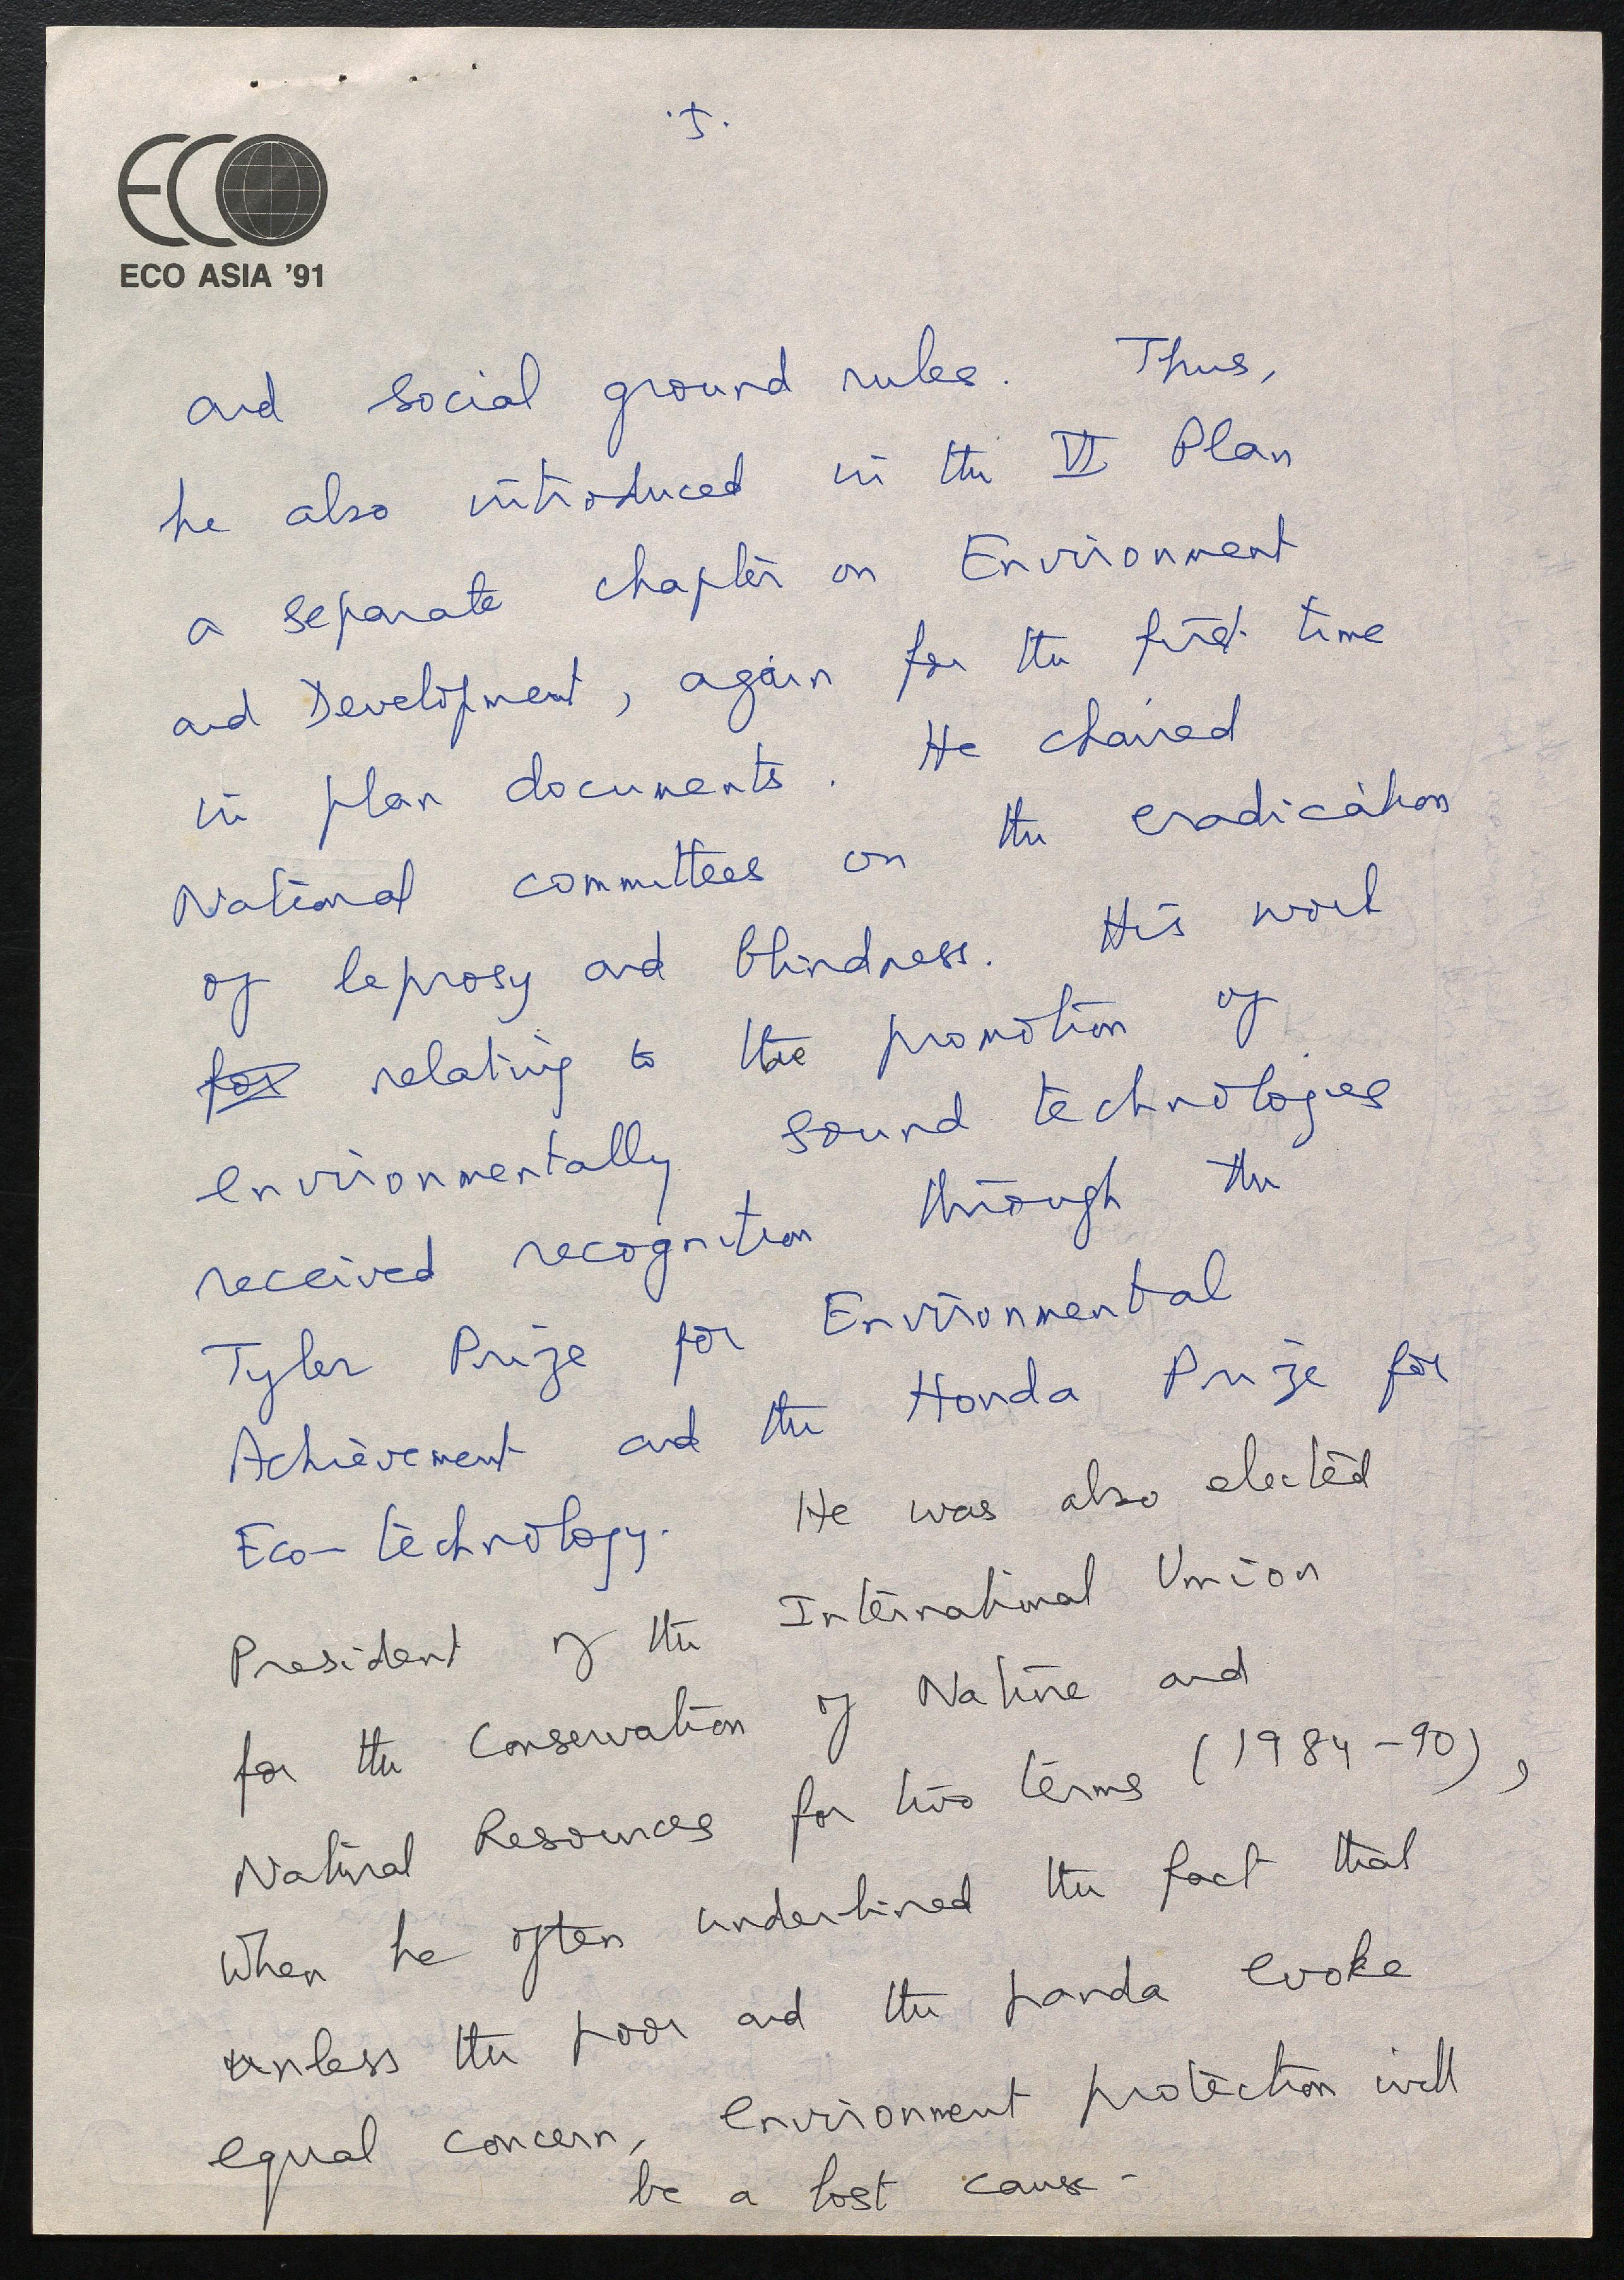 .5.
ECO
ECO ASIA '91
and social ground rules. Thus,
he also introduced in the VI Plan
a separate chapter on Environment
and Development, again for the first time
in plan documents. He chaired
National committees on the eradication
of leprosy and blindness. His work
for relating to the promotion of
environmentally sound technologies
received recognition through the
Tyler Prize for Environmental
Achievement and the Honda Prize for
Eco-technology. He was also elected
President of the International Union
for the Conservation of Nature and
Natural Resources for two terms (1984-90),
When he often underlined the fact that
unless the poor and the panda evoke
equal concern, environment protection will
be a lost cause-